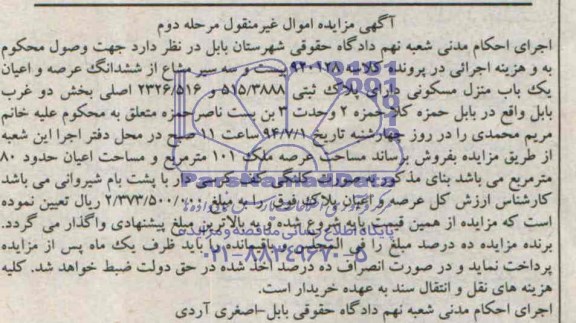 آگهی مزایده اموال غیرمنقول مرحله دوم
اجرای احکام مدنی شعبه نهم دادگاه حقوقی شهرستان بابل در نظر دارد جهت وصول محکوم
به و هزینه اجرائی در پرونده کلاسه ۹۲۰۱۲۸ بیست و سه سیر مشاع از ششدانگ عرصه و اعیان
یک باب منزل مسکونی دارای پلاک ثبتی ۵۱۵/۳۸۸۸ و ۲۳۲۶/۵۱۶ اصلی بخش دو غرب
بابل واقع در بابل حمزه کلا حمزه ۲ وحدت ۳ بن بست ناصر حمزه متعلق به محکوم علیه خانم
مریم محمدی را در روز چهارشنبه تاریخ ۹۴/۷/۱ ساعت ۱۱ صبح در محل دفتر اجرا این شعبه
از طریق مزایده بفروش برساند مساحت عرصه ملک ۱۰۱ مترمربع و مساحت اعیان حدود ۸۰
مترمربع می باشد بنای مذکور به صورت کلنگی کف کرسی دار با پشت بام شیروانی می باشد
کارشناس ارزش کل عرصه و اعیان پلاک فوق را به مبلغ ۲/۳۷۳/۵۰۰/۰۰۰ ریال تعیین نموده
است که مزایده از همین قیمت پایه شروع شده و به بالاترین مبلغ پیشنهادی واگذار می گردد.
برنده مزایده ده درصد مبلغ را فی المجلس و باقیمانده را باید ظرف یک ماه پس از مزایده
پرداخت نماید و در صورت انصراف ده درصد اخذ شده در حق دولت ضبط خواهد شد. کلیه
هزینه های نقل و انتقال سند به عهده خریدار است.
اجرای احکام مدنی شعبه نهم دادگاه حقوقی بابل-اصغری آردی
ParsNamadData
پایگاه اطلاع رسانی مناقصه و مزایده
۰۲۱-۸۸۳۴۹۶۷۰-۵